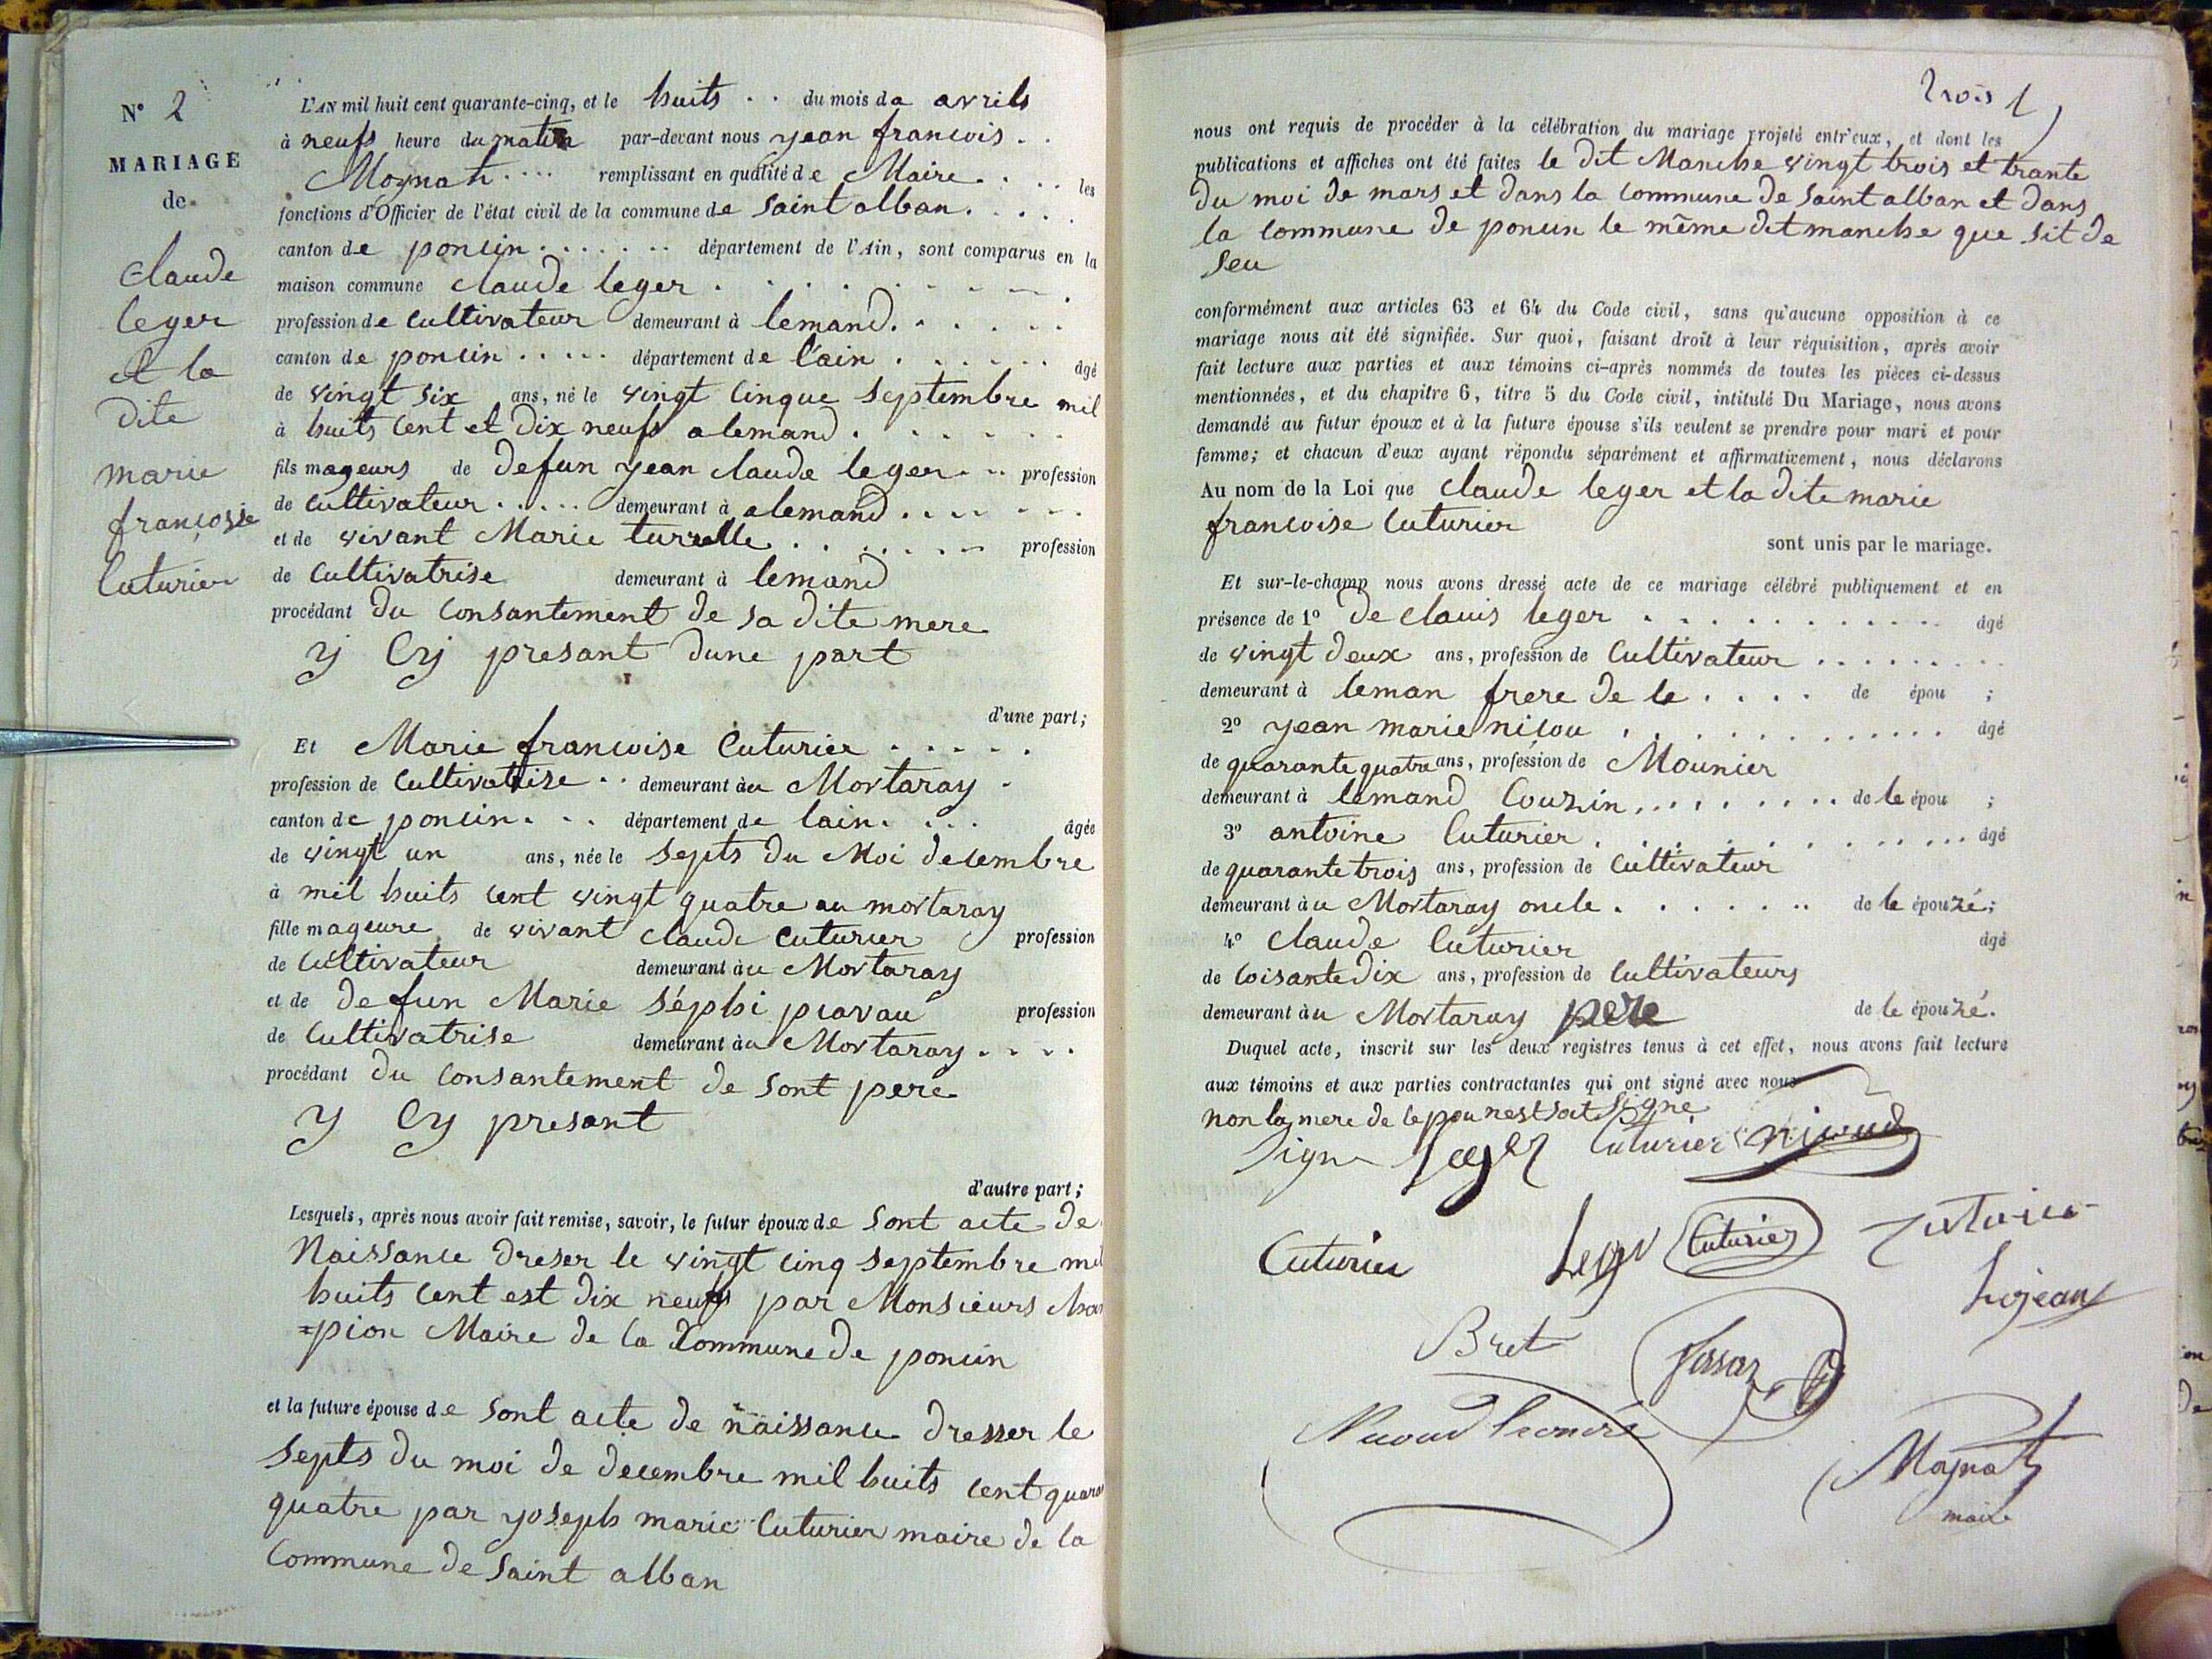 N° 2
MARIAGE
de
claude
leger
et la
dite
marie
françoise
Cuturier
L'AN mil huit cent quarante-cinq, et le huits . . du mois de avrils
à neufs heure du matin par-devant nous yean francois . .
Moynat .... remplissant en qualité de Maire . . . . les
fonctions d'Officier de l'état civil de la commune de Saint alban . . . . .
canton de poncin . . . . . . . . département de l'Ain, sont comparus en la
maison commune claude leger . . . . . . . . .
profession de Cultivateur demeurant à lemand . . . . . .
canton de poncin . . . . . département de l'ain . . . . . . âgé
de vingt six ans, né le vingt cinque Septembre mil
à huits Cent et Dix neufs alemand . . . . . .
fils mageurs de defun yean claude leger . . . profession
de Cultivateur . . . . . demeurant à alemand . . . . . . .
et de vivant Marie turrelle . . . . . . . profession
de Cultivatrise demeurant à lemand
procédant du Consantement de sa dite mere
y Cy presant dune part
d'une part;
Et Marie francoise Cuturier . . . . .
profession de Cultivatrise . . demeurant à au Mortaray .
canton de poncin . . . département de lain . . . . âgée
de vingt un ans, née le Septs du Moi decembre
à mil huits cent vingt quatre au mortaray
fille mageure de vivant claude Cuturier profession
de Cultivateur demeurant à u Mortaray
et de defun Marie Séphi pravau profession
de Cultivatrise demeurant à u Mortaray . . . .
procédant du Consantement de sont pere
y Cy presant
d'autre part;
Lesquels, après nous avoir fait remise, savoir, le futur époux de Sont acte de
Naissance dreser le vingt cinq Septembre mil
huits cent est dix neufs par Monsieurs
=pion Maire de la Commune de poncin
et la future épouse de Sont acte de naissance dresser le
Septs du moi de decembre mil huits cent
quatre par yoseph marie Cuturier maire de la
Commune de Saint alban
trois
nous ont requis de procéder à la célébration du mariage projeté entr'eux, et dont les
publications et affiches ont été faites le dit Manche vingt trois et trante
du moi de mars et dans la Commune de Saint alban et dans
la Commune de poncin le même ditmanche que sit de
seu
conformément aux articles 63 et 64 du Code civil, sans qu'aucune opposition à ce
mariage nous ait été signifiée. Sur quoi, faisant droit à leur réquisition, après avoir
fait lecture aux parties et aux témoins ci-après nommés de toutes les pièces ci-dessus
mentionnées, et du chapitre 6, titre 5 du Code civil, intitulé Du Mariage, nous avons
demandé au futur époux et à la future épouse s'ils veulent se prendre pour mari et pour
femme; et chacun d'eux ayant répondu séparément et affirmativement, nous déclarons
Au nom de la Loi que Claude leger et la dite marie
francoise Cuturier
sont unis par le mariage.
Et sur-le-champ nous avons dressé acte de ce mariage célébré publiquement et en
présence de 1° De clauis leger . . . . . . . . . . . âgé
de vingt deux ans, profession de Cultivateur . . . . . . . . .
demeurant à leman frere de le . . . . de épou ;
2° yean marie nicou . . . . . . . . . . . . âgé
de quarante quatre ans, profession de Mounier
demeurant à lemand Couzin . . . . . . . . de le épou ;
3° antoine Cuturier . . . . . . . . . . . . âgé
de quarante trois ans, profession de Cultivateur
demeurant à u Mortaray oncle . . . . . . . de le épouzé;
4° Claude Cuturier âgé
de Coisante Dix ans, profession de Cultivateurs
demeurant à u Mortaray pere de le épouzé.
Duquel acte, inscrit sur les deux registres tenus à cet effet, nous avons fait lecture
aux témoins et aux parties contractantes qui ont signé avec nous
non la mere de lepou nest sat signe
Signe leger Cuturier nicoud
Cuturier Leger Cuturier
Bret
Mognat
maire